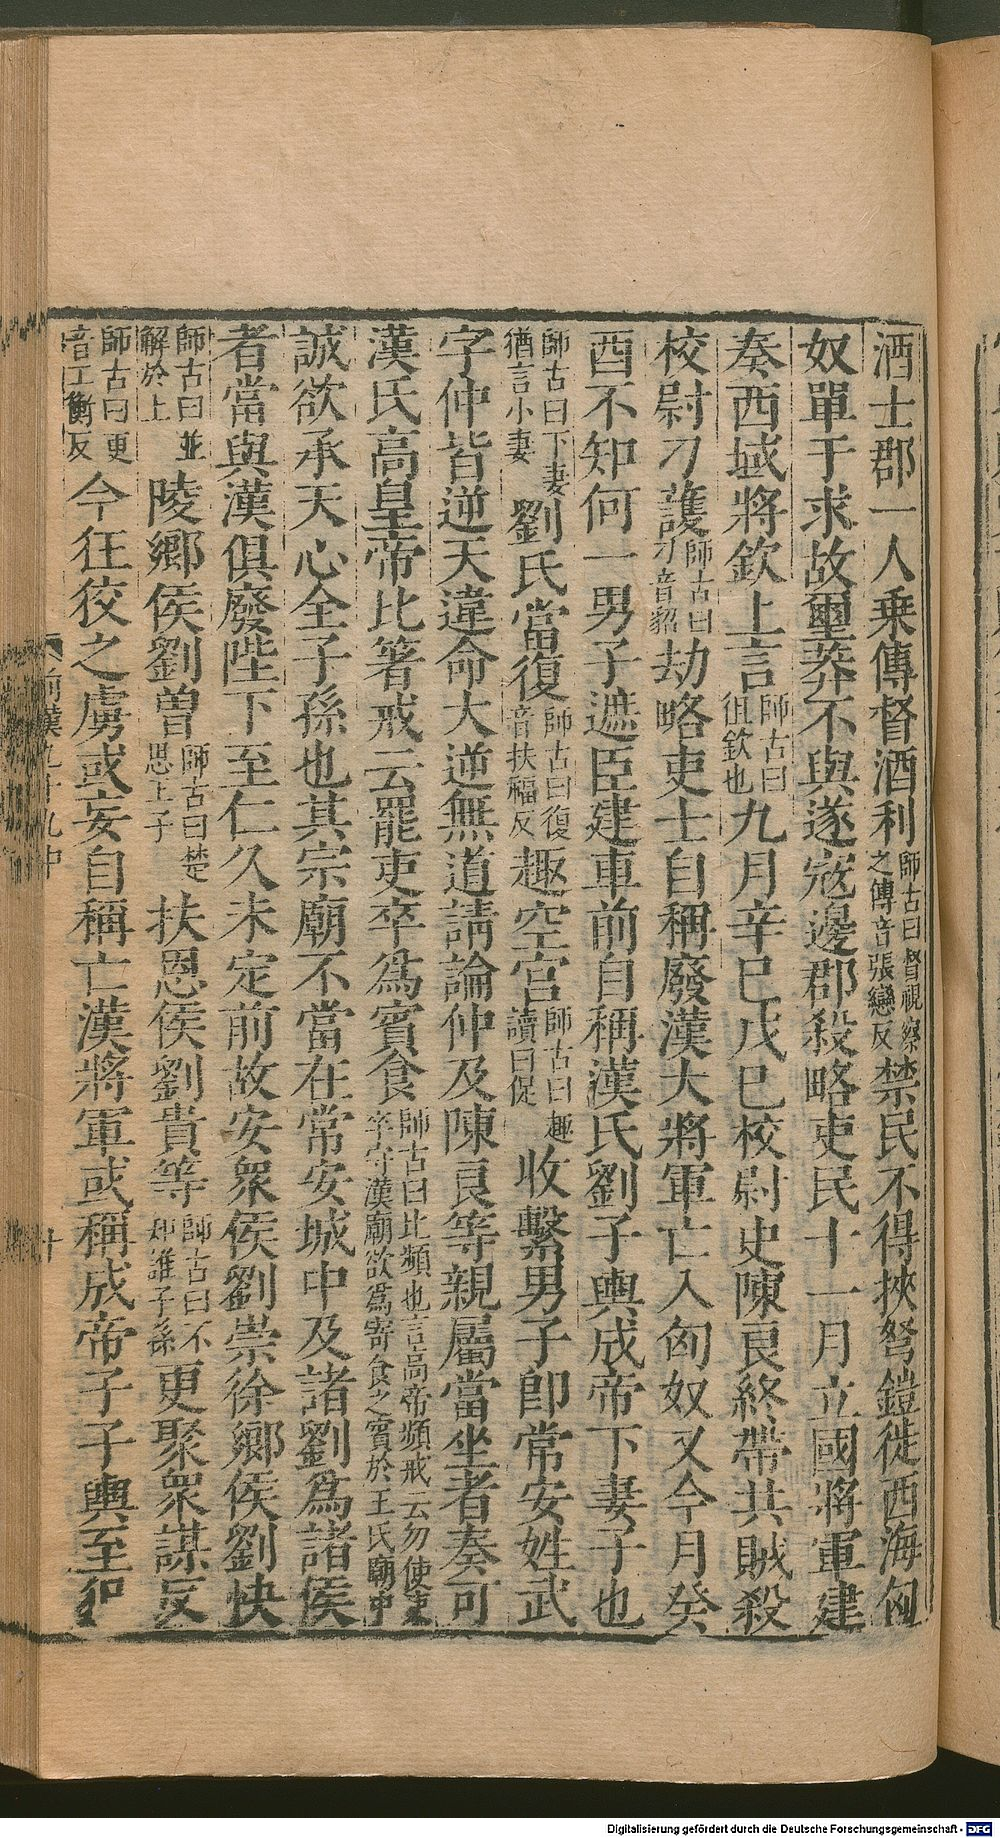 酒士郡一人乗傳督酒利師古曰督視察之傳音張戀反禁民不得挾弩鎧徙西海匈
奴單于求故璽莽不與遂寇邊郡殺略吏民十一月立國將軍建
奏西域將欽上言師古曰但欽也九月辛巳戊巳校尉史陳良終帶共賊殺
校尉刀護師古曰刀音貂劫略吏士自稱廢漢大將軍亡入匈奴又今月癸
酉不知何一男子遮臣建車前自稱漢氏劉子輿成帝下妻子也
師古曰下妻猶言小妻劉氏當復師古曰復音扶福反趣空宫師古曰趣讀曰促收繫男子卽常安姓武
字仲皆逆天違命大逆無道請論仲及陳良等親屬當坐者奏可
漢氏高皇帝比箸戒云罷吏卒爲賓食師古曰比頻也言高帝頻戒云勿使吏卒守漢廟欲爲寄食之賓於王氏廟中
誠欲承天心全子孫也其宗廟不當在常安城中及諸劉爲諸侯
者當與漢俱廢陛下至仁久未定前故安衆侯劉崇徐鄉侯劉快
師古曰並解於上陵鄉侯劉曾師古曰楚思王子扶恩侯劉貴等師古曰不知誰子孫更聚衆謀反
師古曰更音工衡反今狂狡之虜或妄自稱亡漢將軍或稱成帝子子輿至犯
前漢九十九中
十
Digitalisierung gefördert durch die Deutsche Forschungsgemeinschaft - DFG